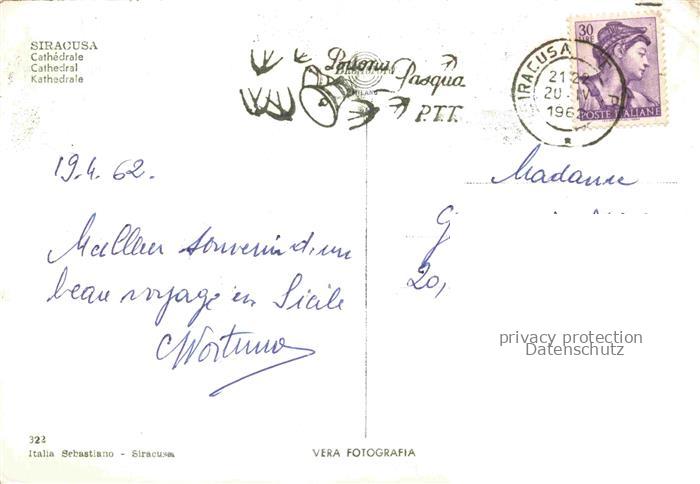 SIRACUSA
Cathédrale
Cathedral
Kathedrale
Buona Pasqua
P.T.T.
SIRACUSA
21-22
20·IV
1962
30
LIRE
POSTE ITALIANE
19.4.62.
Meilleur souvenir d'un
beau voyage en Sicile
Madame
G
20,
privacy protection
Datenschutz
322
Italia Sebastiano - Siracusa
VERA FOTOGRAFIA